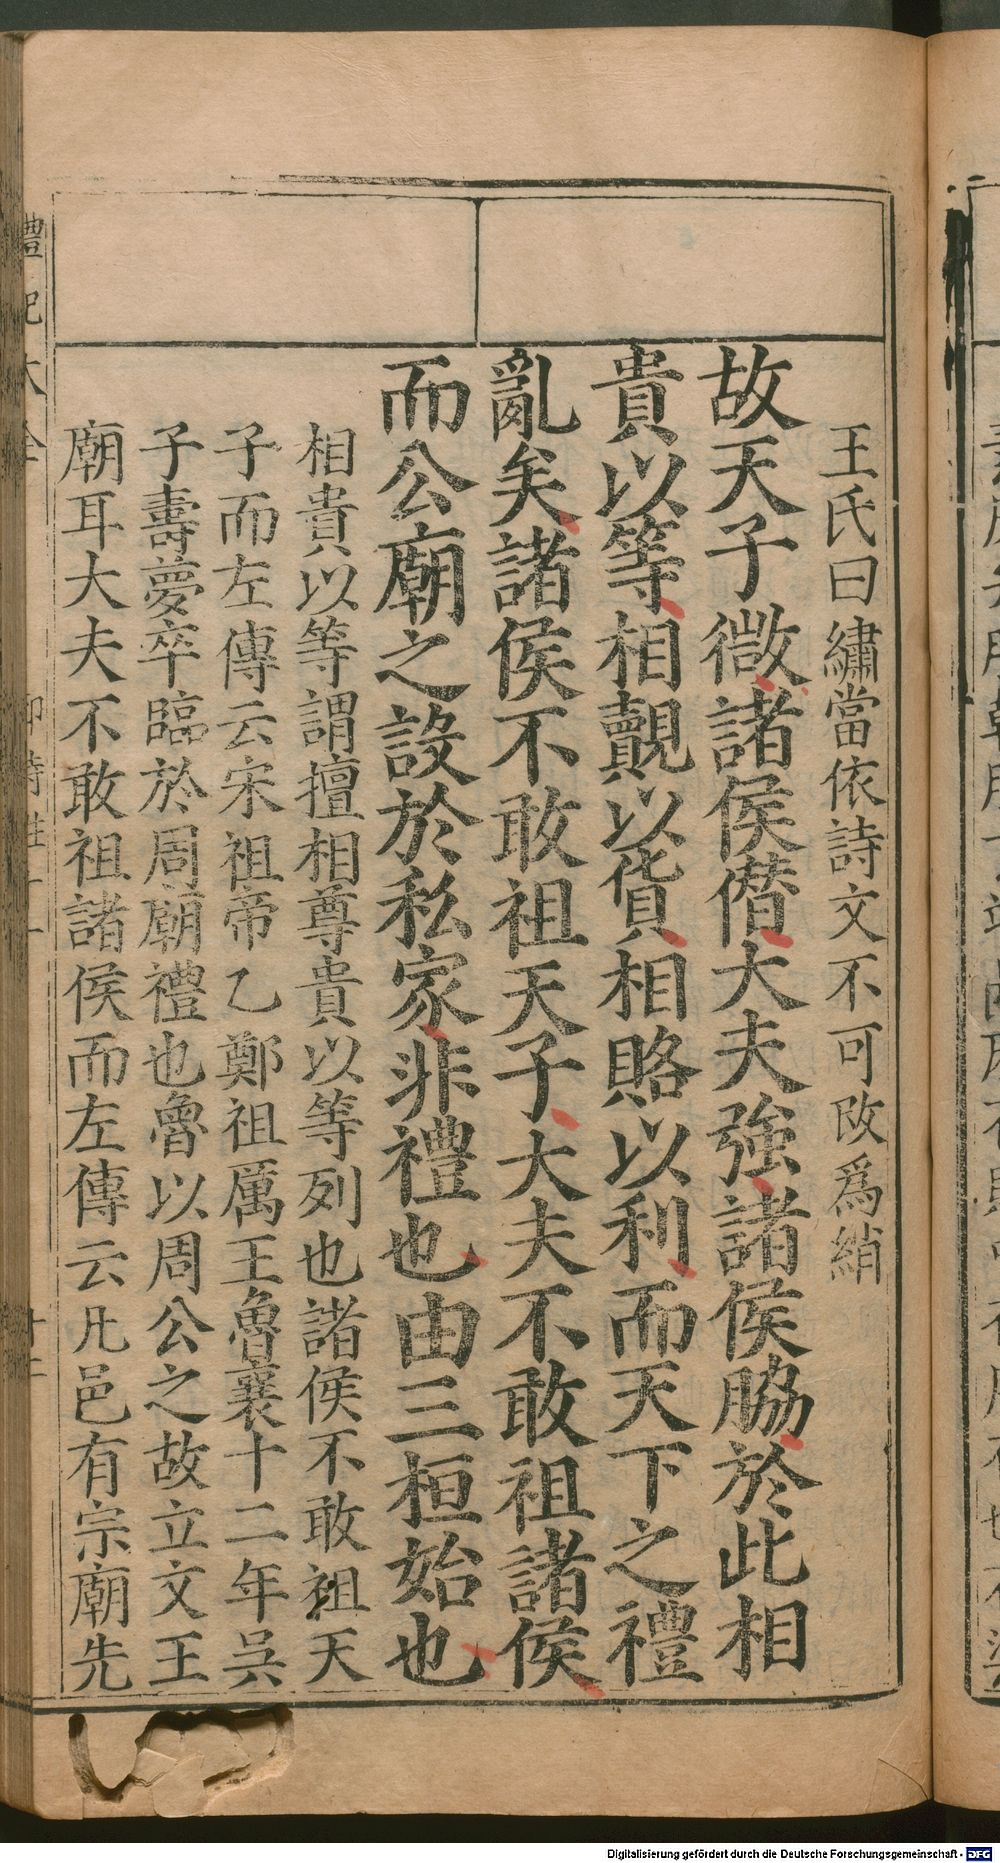 王氏曰繡當依詩文不可改爲綃
故天子微諸侯僣大夫強諸侯脇於此相
貴以等相覿以貨相賂以利而天下之禮
亂矣諸侯不敢祖天子大夫不敢祖諸侯
而公廟之設於私家非禮也由三桓始也
相貴以等謂擅相尊貴以等列也諸侯不敢祖天
子而左傳云宋祖帝乙鄭祖厲王魯襄十二年吳
子壽夢卒臨於周廟禮也魯以周公之故立文王
廟耳大夫不敢祖諸侯而左傳云凡邑有宗廟先
禮記大全
Digitalisierung gefördert durch die Deutsche Forschungsgemeinschaft - DFG